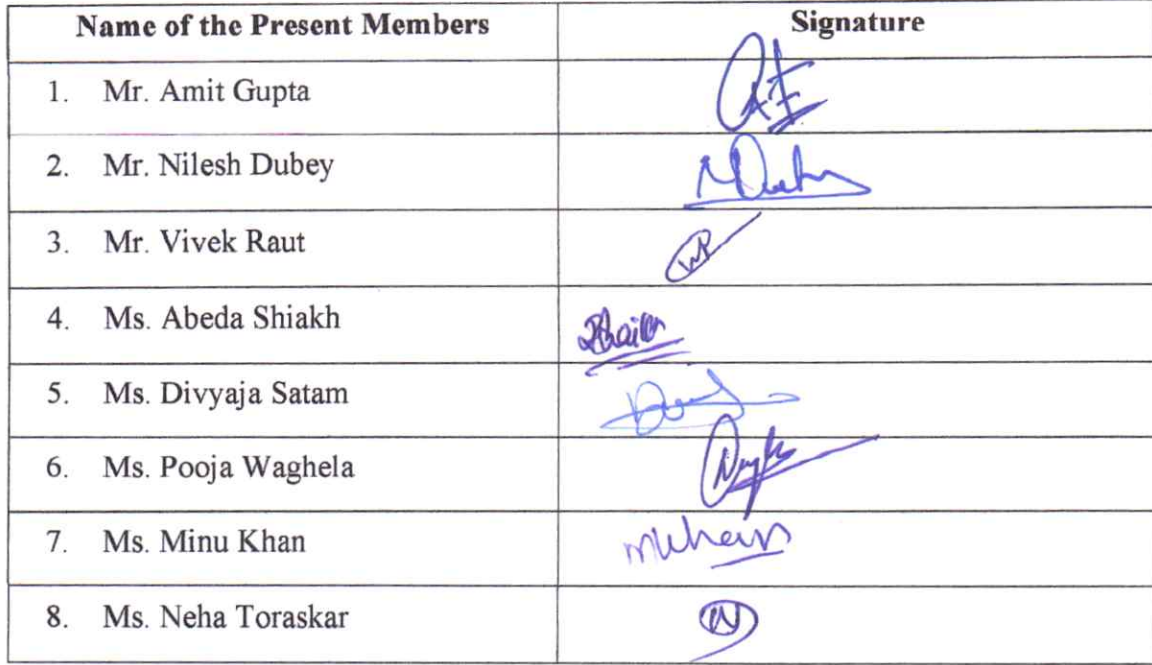 Name of the Present Members Signature
1. Mr. Amit Gupta
2. Mr. Nilesh Dubey
3. Mr. Vivek Raut
4. Ms. Abeda Shiakh
5. Ms. Divyaja Satam
6. Ms. Pooja Waghela
7. Ms. Minu Khan
8. Ms. Neha Toraskar